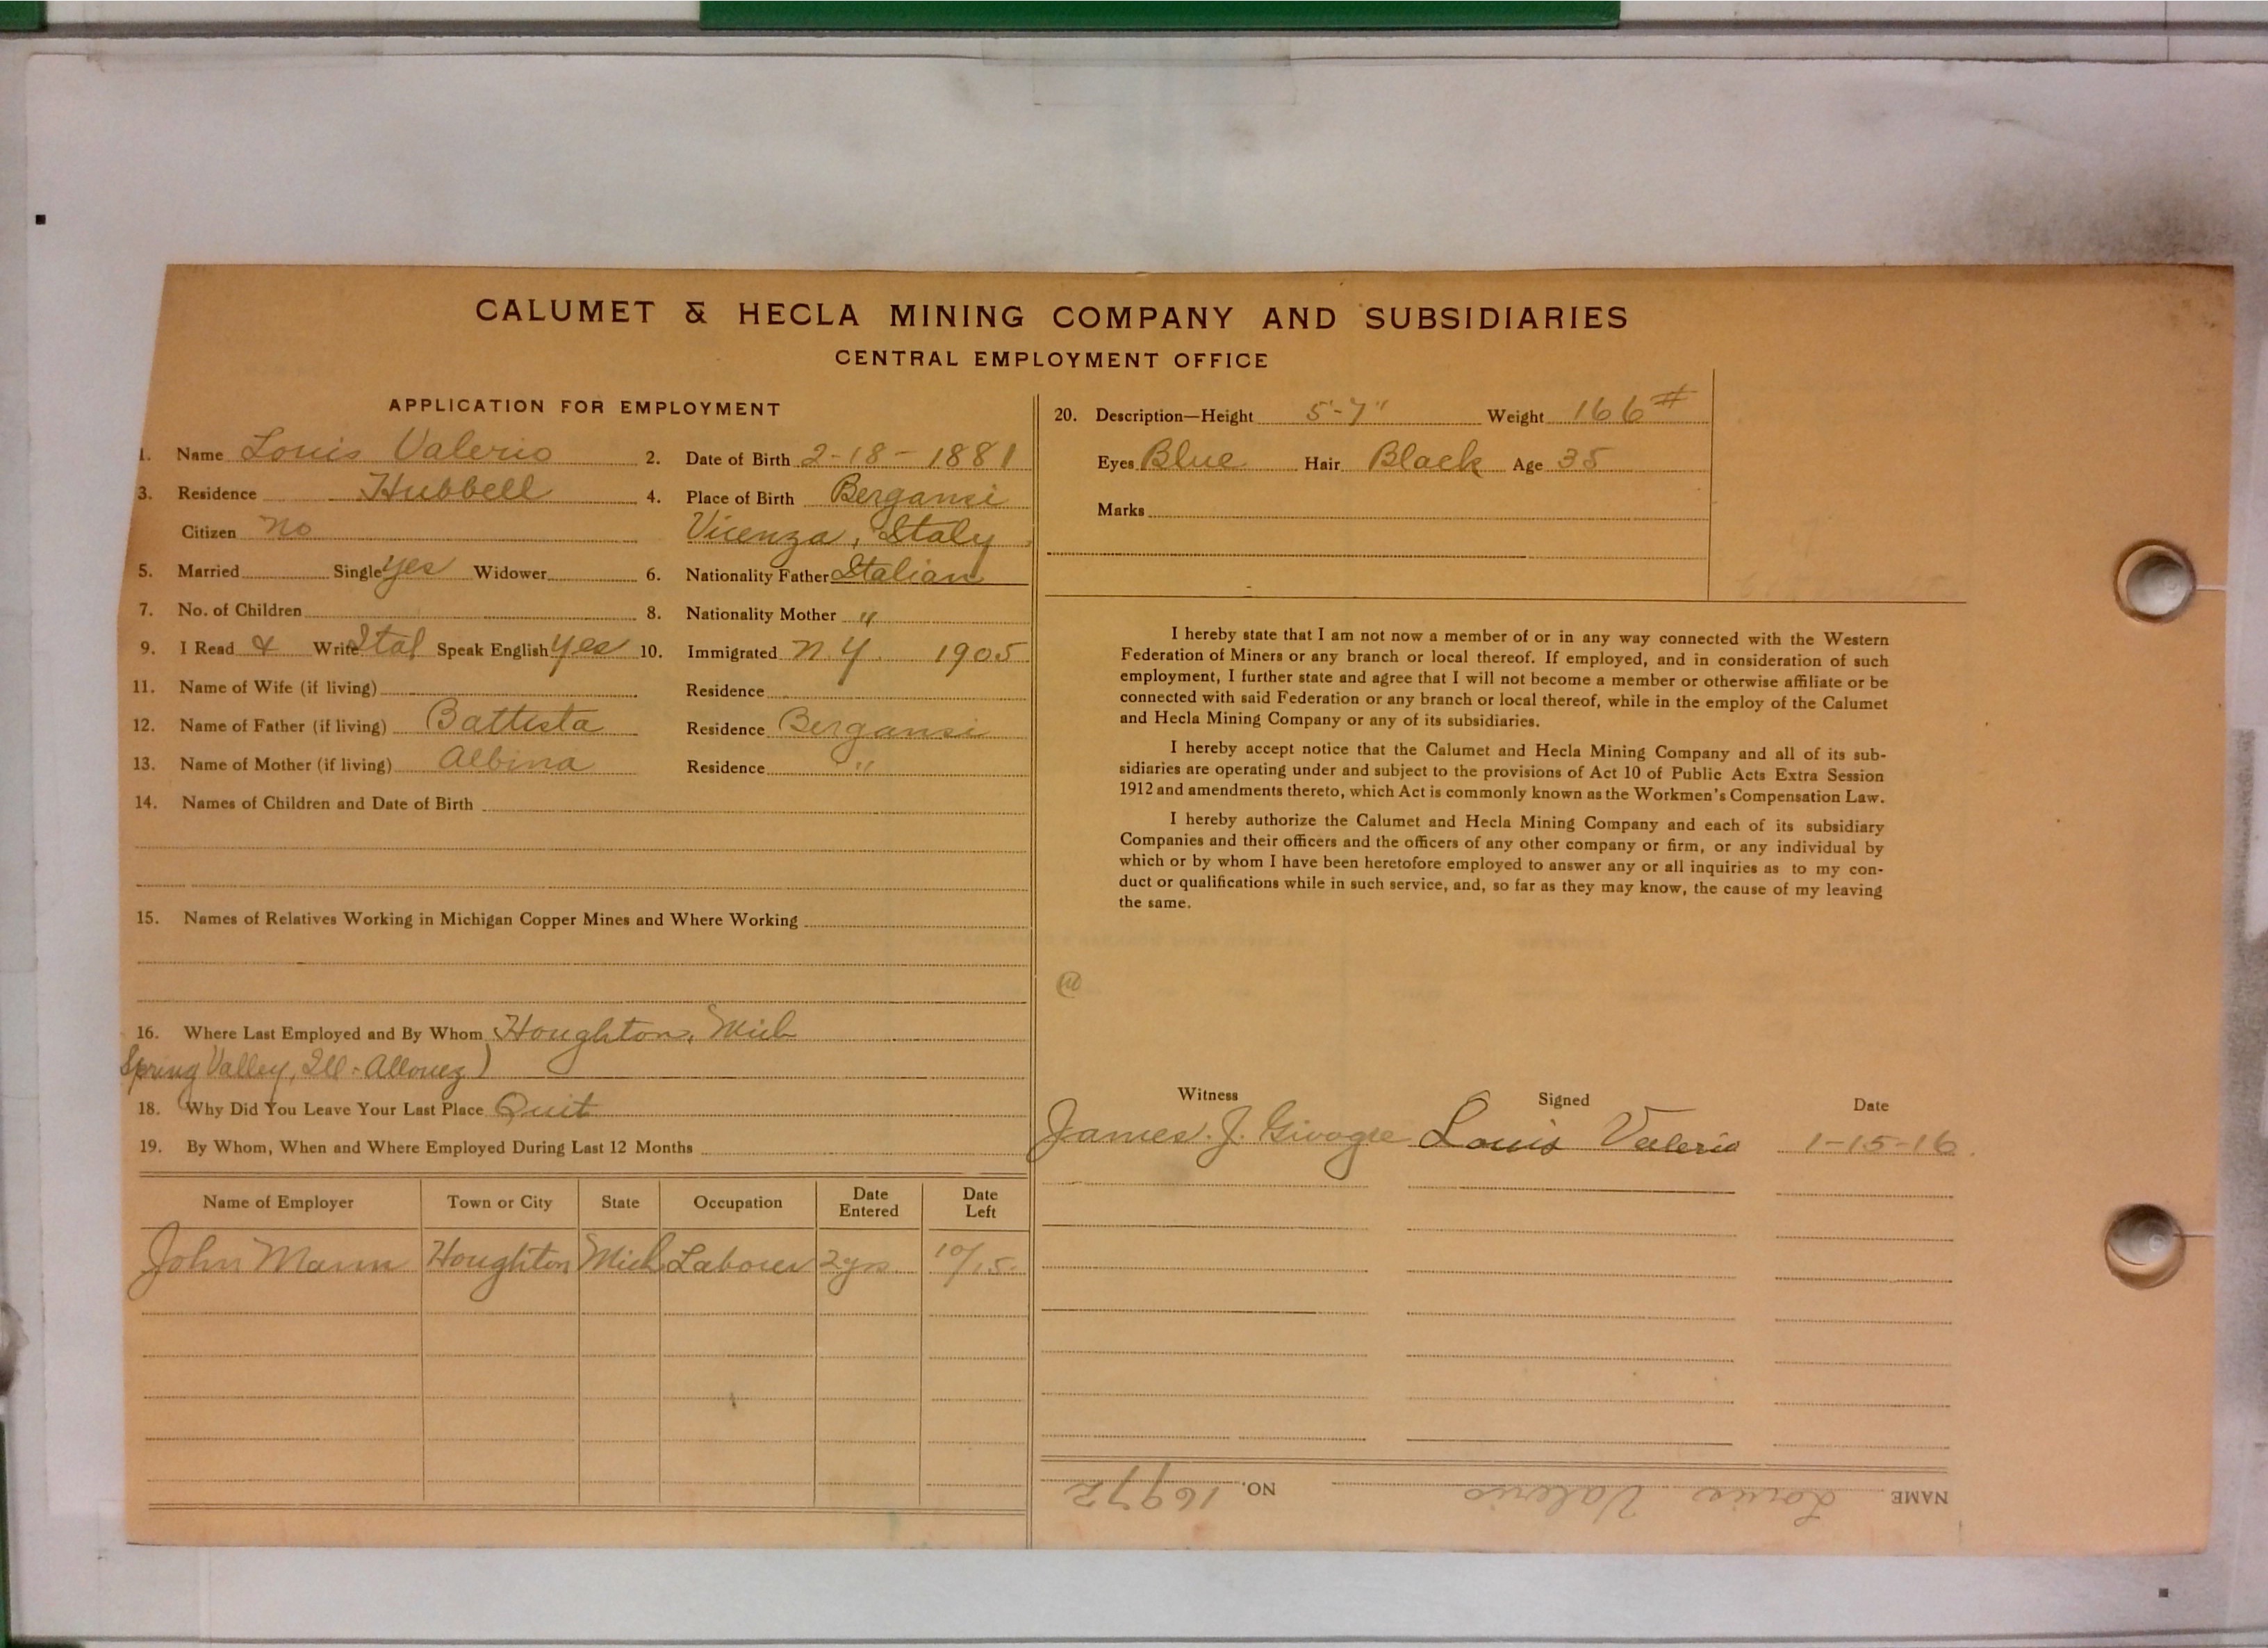 CALUMET & HECLA MINING COMPANY AND SUBSIDIARIES
CENTRAL EMPLOYMENT OFFICE
APPLICATION FOR EMPLOYMENT
1. Name Louis Valerio 2. Date of Birth 2-18-1881
3. Residence Hubbell 4. Place of Birth Bergansi
Citizen no Vicenza, Italy
5. Married Single yes Widower 6. Nationality Father Italian
7. No. of Children 8. Nationality Mother "
9. I Read & Write Ital Speak English yes 10. Immigrated N.Y. 1905
11. Name of Wife (if living) Residence
12. Name of Father (if living) Battista Residence Bergansi
13. Name of Mother (if living) Albina Residence "
14. Names of Children and Date of Birth
15. Names of Relatives Working in Michigan Copper Mines and Where Working
16. Where Last Employed and By Whom Houghton, Mich
Spring Valley, Ill - Allouez)
18. Why Did You Leave Your Last Place Quit
19. By Whom, When and Where Employed During Last 12 Months
Name of Employer Town or City State Occupation Date Entered Date Left
John Mann Houghton Mich Laborer 2 yrs. 10/15
20. Description—Height 5'-7" Weight 166#
Eyes Blue Hair Black Age 35
Marks
I hereby state that I am not now a member of or in any way connected with the Western
Federation of Miners or any branch or local thereof. If employed, and in consideration of such
employment, I further state and agree that I will not become a member or otherwise affiliate or be
connected with said Federation or any branch or local thereof, while in the employ of the Calumet
and Hecla Mining Company or any of its subsidiaries.
I hereby accept notice that the Calumet and Hecla Mining Company and all of its sub-
sidiaries are operating under and subject to the provisions of Act 10 of Public Acts Extra Session
1912 and amendments thereto, which Act is commonly known as the Workmen's Compensation Law.
I hereby authorize the Calumet and Hecla Mining Company and each of its subsidiary
Companies and their officers and the officers of any other company or firm, or any individual by
which or by whom I have been heretofore employed to answer any or all inquiries as to my con-
duct or qualifications while in such service, and, so far as they may know, the cause of my leaving
the same.
Witness Signed Date
James. J. Louis Valerio 1-15-16.
NAME Louis Valerio NO. 16972